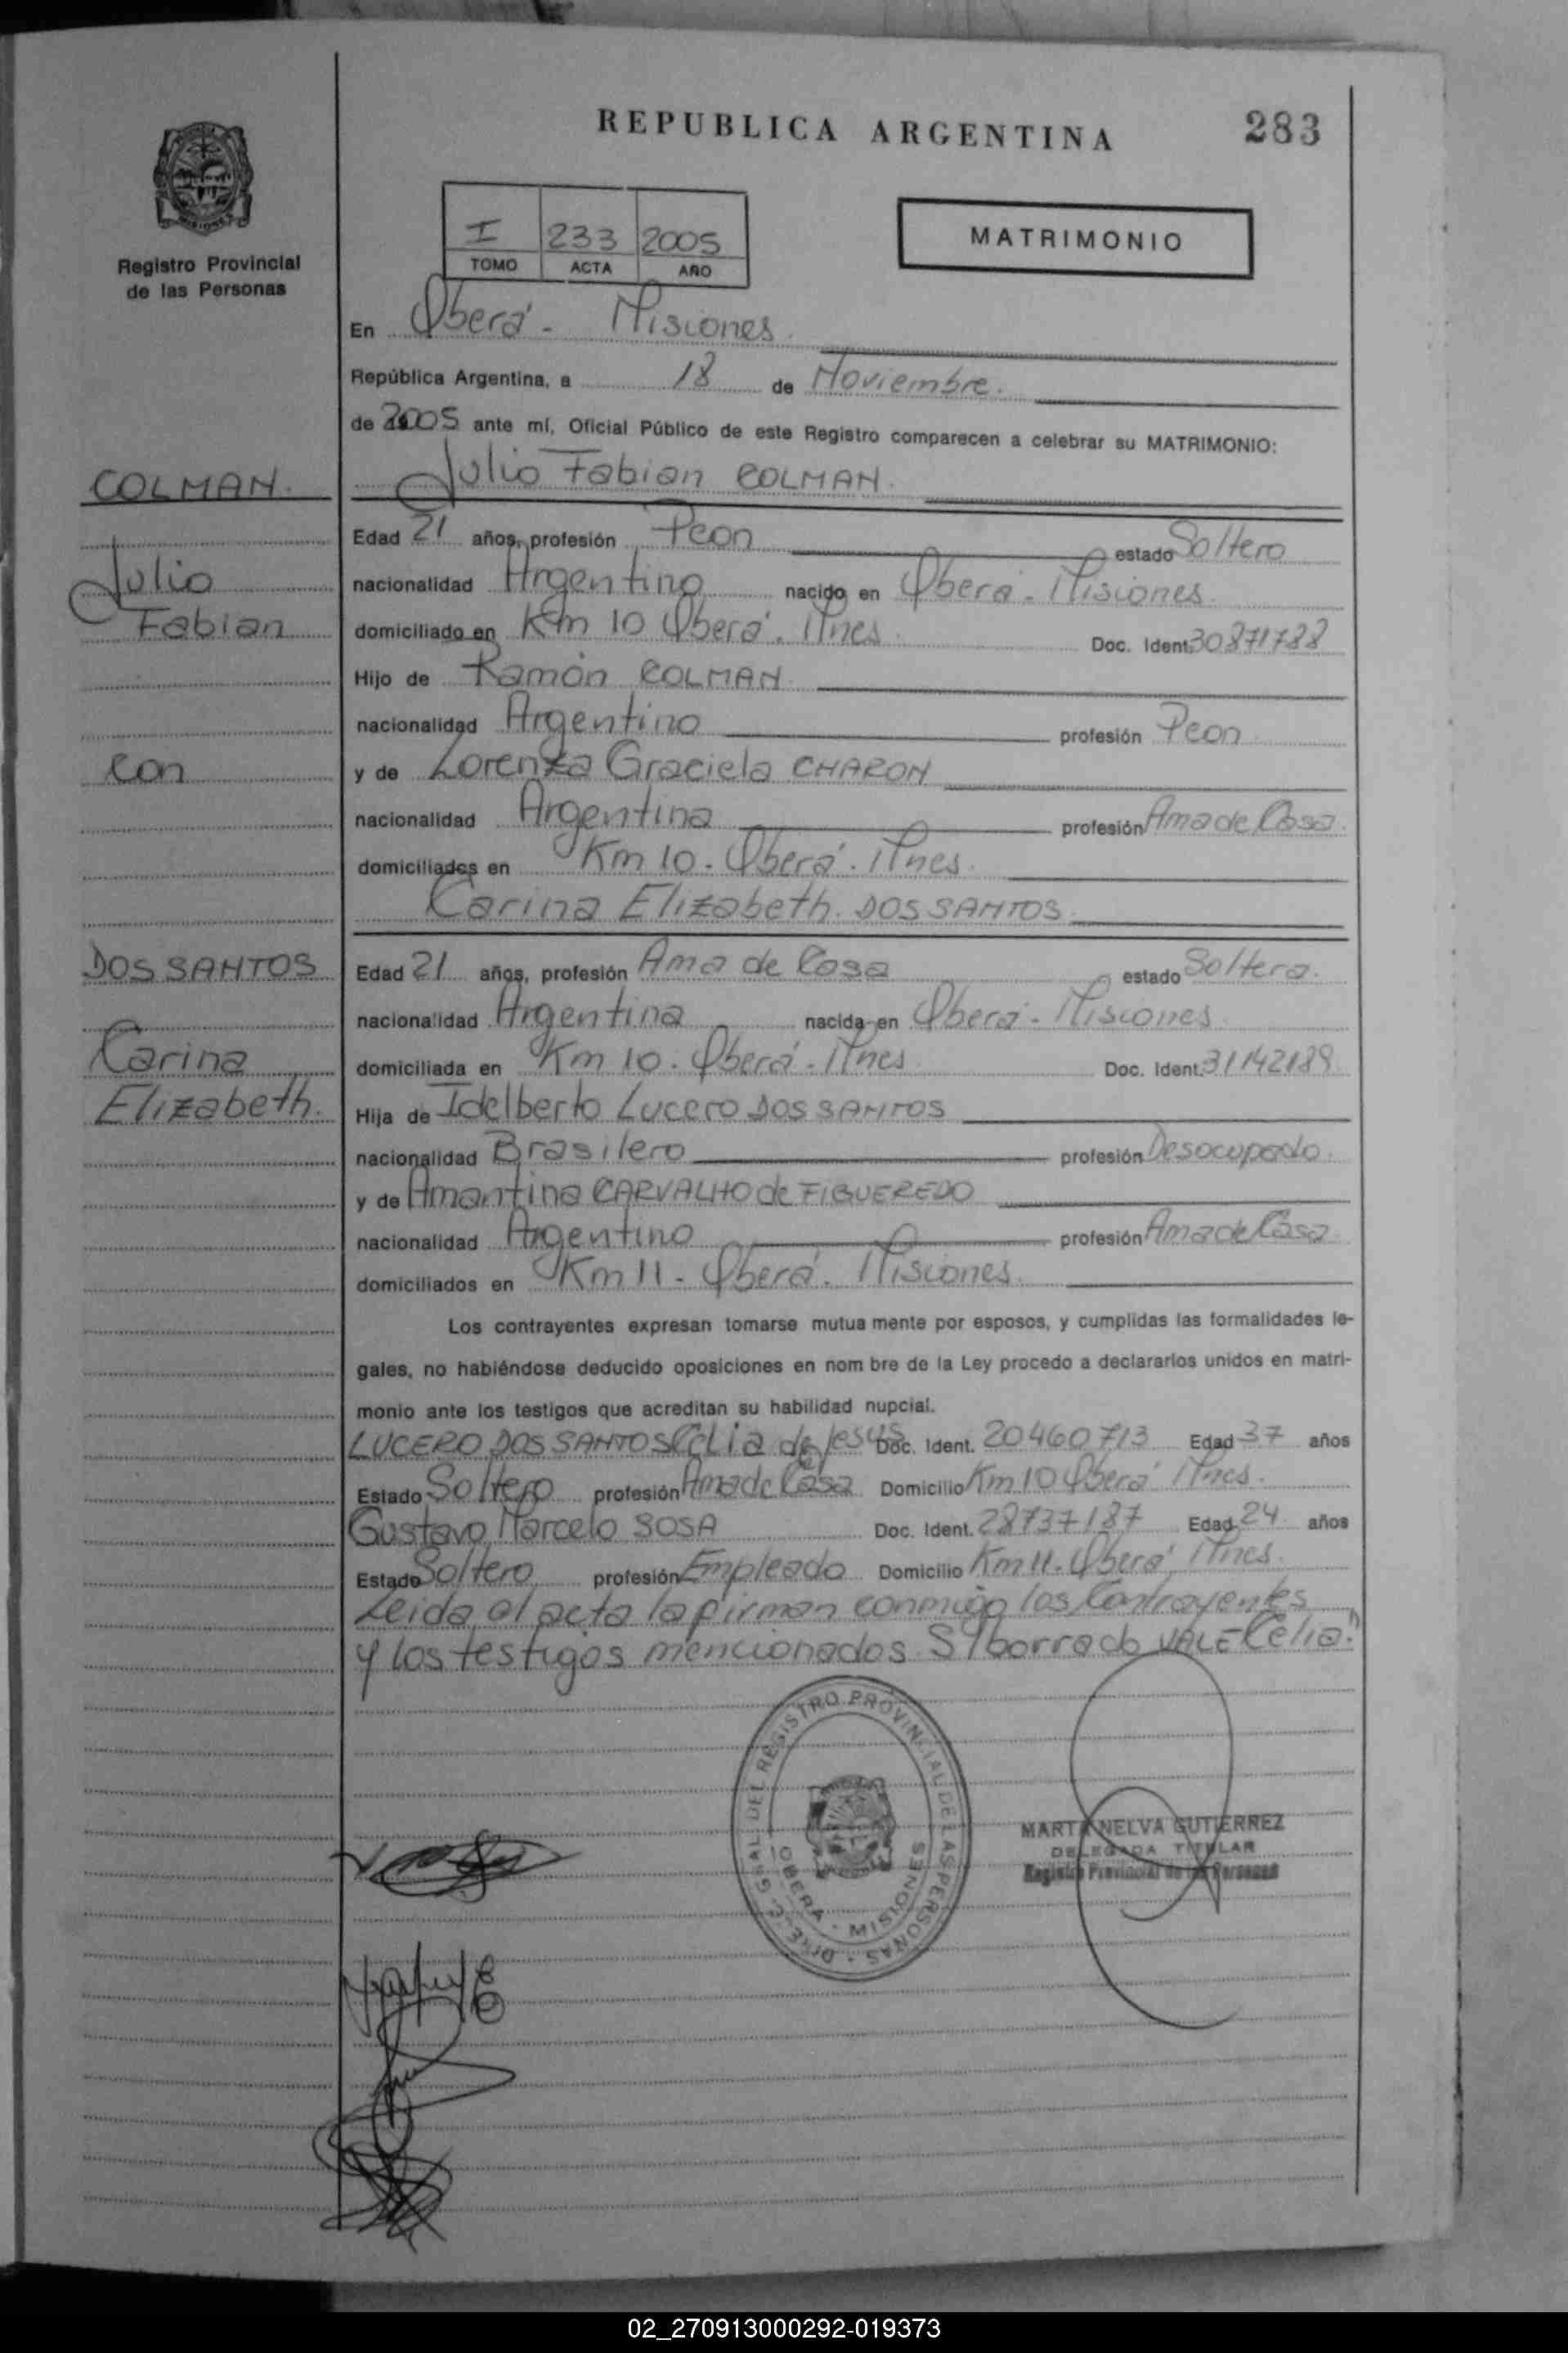 REPUBLICA ARGENTINA
283
Registro Provincial
de las Personas
I 233 2005
TOMO ACTA AÑO
MATRIMONIO
En Oberá - Misiones.
República Argentina, a 18 de Noviembre.
de 2005 ante mí, Oficial Público de este Registro comparecen a celebrar su MATRIMONIO:
COLMAN.
Julio Fabian
con
DOS SANTOS
Carina
Elizabeth.
Julio Fabian COLMAN.
Edad 21 años, profesión Peon estado Soltero
nacionalidad Argentino nacido en Oberá - Misiones.
domiciliado en Km 10 Oberá. Mnes. Doc. Ident. 30871788
Hijo de Ramón COLMAN.
nacionalidad Argentino profesión Peon
y de Lorenza Graciela CHARON
nacionalidad Argentina profesión Ama de Casa.
domiciliados en Km 10 - Oberá - Mnes.
Carina Elizabeth. DOS SANTOS.
Edad 21 años, profesión Ama de Casa estado Soltera.
nacionalidad Argentina nacida en Oberá - Misiones.
domiciliada en Km 10 - Oberá - Mnes. Doc. Ident. 31142189
Hija de Idelberto Lucero DOS SANTOS
nacionalidad Brasilero profesión Desocupado.
y de Amantina CARVALHO de FIGUEREDO
nacionalidad Argentino profesión Ama de Casa.
domiciliados en Km 11 - Oberá. Misiones.
Los contrayentes expresan tomarse mutua mente por esposos, y cumplidas las formalidades le-
gales, no habiéndose deducido oposiciones en nom bre de la Ley procedo a declararlos unidos en matri-
monio ante los testigos que acreditan su habilidad nupcial.
LUCERO DOS SANTOS Celia de Jesus Doc. Ident. 20460713 Edad 37 años
Estado Soltero profesión Ama de Casa Domicilio Km 10 Oberá Mnes.
Gustavo Marcelo SOSA Doc. Ident. 28737187 Edad 24 años
Estado Soltero profesión Empleado Domicilio Km 11 - Oberá, Mnes.
Leida el acta la firman conmigo los Contrayentes
y los testigos mencionados. S/borrado VALE Celia."
DEL REGISTRO PROVINCIAL DE LAS PERSONAS
OBERA - MISIONES
MARTA NELVA GUTIERREZ
DELEGADA TITULAR
Registro Provincial de las Personas
02_270913000292-019373